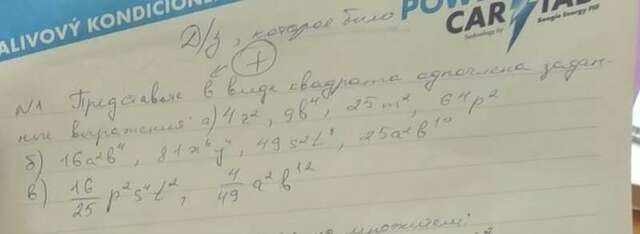 ALIVOVÝ KONDICIONÉ
POW
CAR TAB
Technology by
Д/з, которое было
+
N1 Представьте в виде квадрата одночлена задан-
ные выражения: а) 4z², 9b⁴, 25m², 64p²
б) 16a²b⁴, 81x⁶y⁴, 49s²t⁸, 25a²b¹⁰
в) 16/25 p²s⁴t², 4/49 a²b¹²
множители: